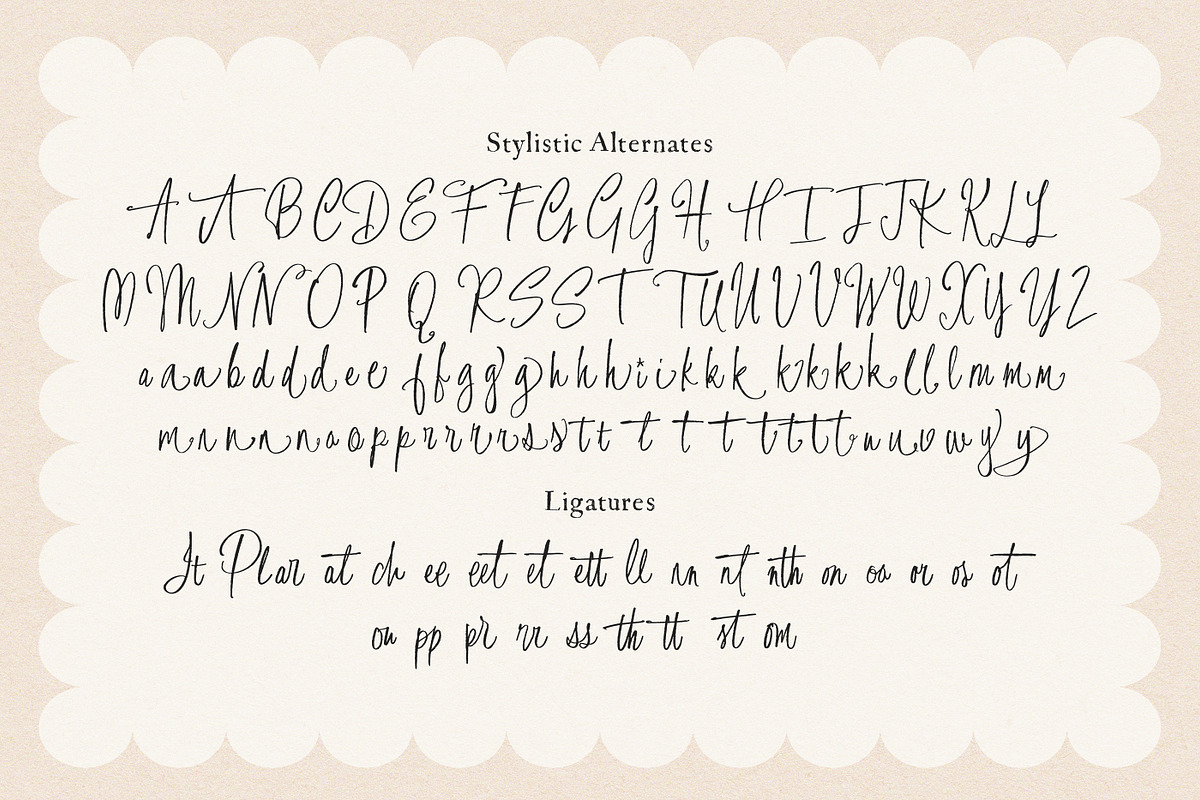 Stylistic Alternates
A A B C D E F F G G G H H I J J K K L L
M M N N O P Q R S S T T U U V V W W X Y Y Z
a a a b d d d d e e f f g g g h h h h i i k k k k k k k l l l m m m
m n n n n n a o p p r r r r r s s t t t t t t t t t u u v w y y
Ligatures
It Plar at ch ee eet et ett ll nn nt nth on oa or os ot
ou pp pr rr ss th tt st om